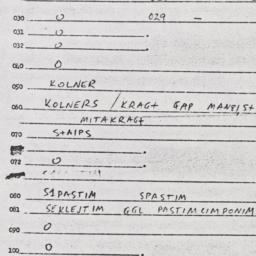 030 0 029 -
031 0
032 0
040 0
050 KOLNER
060 KOLNERS / KRAGT GAP
MITAKRAGT
070 STAIPS
072 0
080 S1PASTIM SPASTIM
081 SEKLEJTIM GGL PASTIMCIMPONIM
090 0
100 0